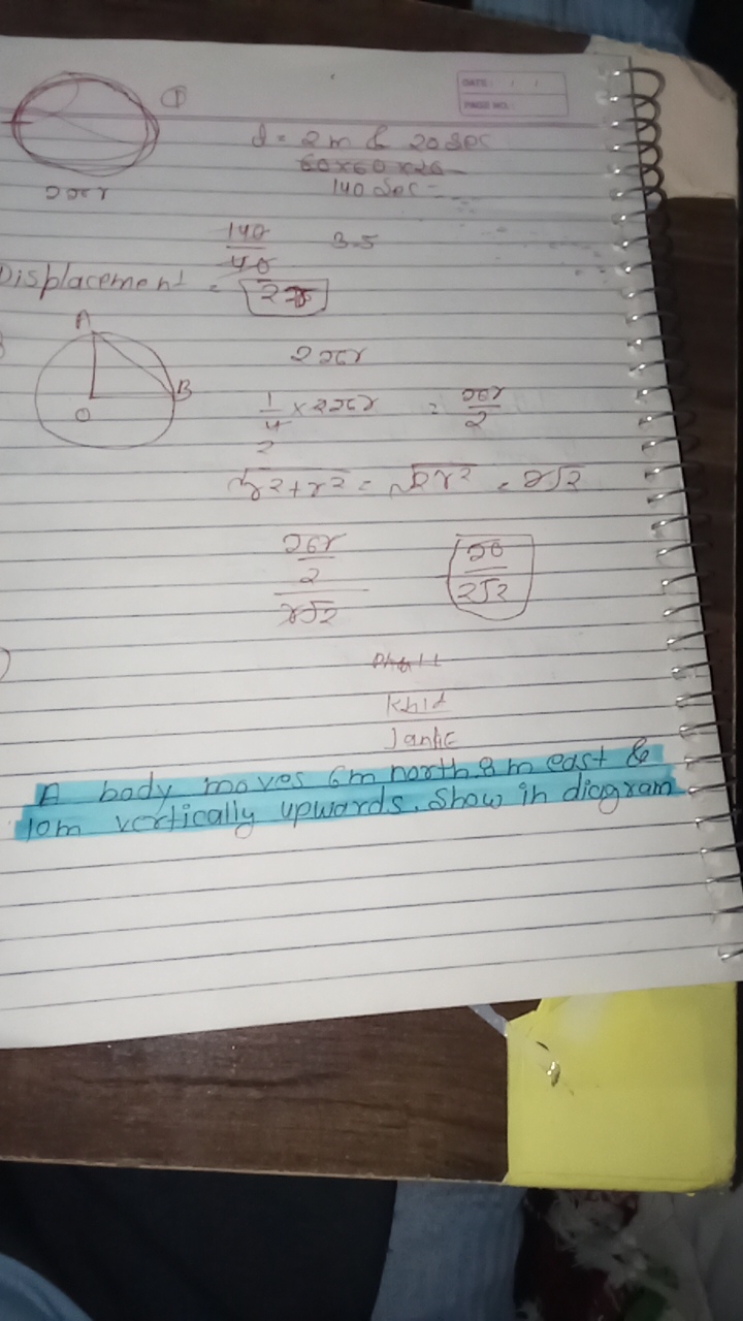 ①
DATE: / /
PAGE NO.:
d = 2 m & 20 sec
60×60×20
140 Sec =
2πr
140
40
3.5
Displacement = 2r
A
B
O
2πr
1/4 × 2πr = πr/2
2
√r²+r² = √2r² = r√2
πr/2
r√2
π/2√2
A body moves 6m north 8m east &
10m vertically upwards. Show in diagram